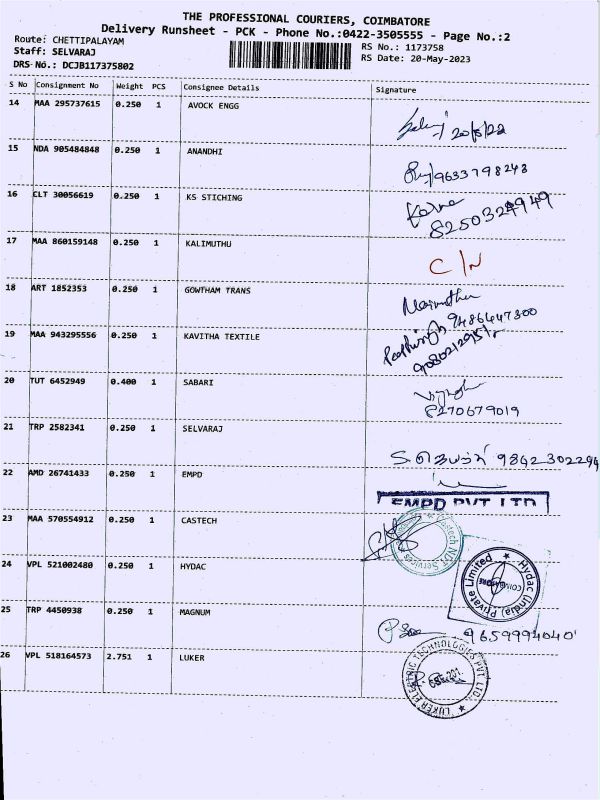 THE PROFESSIONAL COURIERS, COIMBATORE
Delivery Runsheet - PCK - Phone No.:0422-3505555 - Page No.:2
Route: CHETTIPALAYAM
RS No.: 1173758
Staff: SELVARAJ
RS Date: 20-May-2023
DRS No.: DCJB117375802
S No Consignment No Weight PCS Consignee Details Signature
14 MAA 295737615 0.250 1 AVOCK ENGG
20/5/22
15 NDA 905484848 0.250 1 ANANDHI
9633798243
16 CLT 30056619 0.250 1 KS STICHING
8250324949
17 MAA 860159148 0.250 1 KALIMUTHU
C/N
18 ART 1852353 0.250 1 GOWTHAM TRANS
9486447300
19 MAA 943295556 0.250 1 KAVITHA TEXTILE
20 TUT 6452949 0.400 1 SABARI
8270679019
21 TRP 2582341 0.250 1 SELVARAJ
9842302294
22 AMD 26741433 0.250 1 EMPD
EMPD PVT LTD
23 MAA 570554912 0.250 1 CASTECH
Castech NDT Services
24 VPL 521002480 0.250 1 HYDAC
Hydac (India) Private Limited
25 TRP 4450938 0.250 1 MAGNUM
9659994040
26 VPL 518164573 2.751 1 LUKER
LUKER ELECTRIC TECHNOLOGIES PVT LTD.